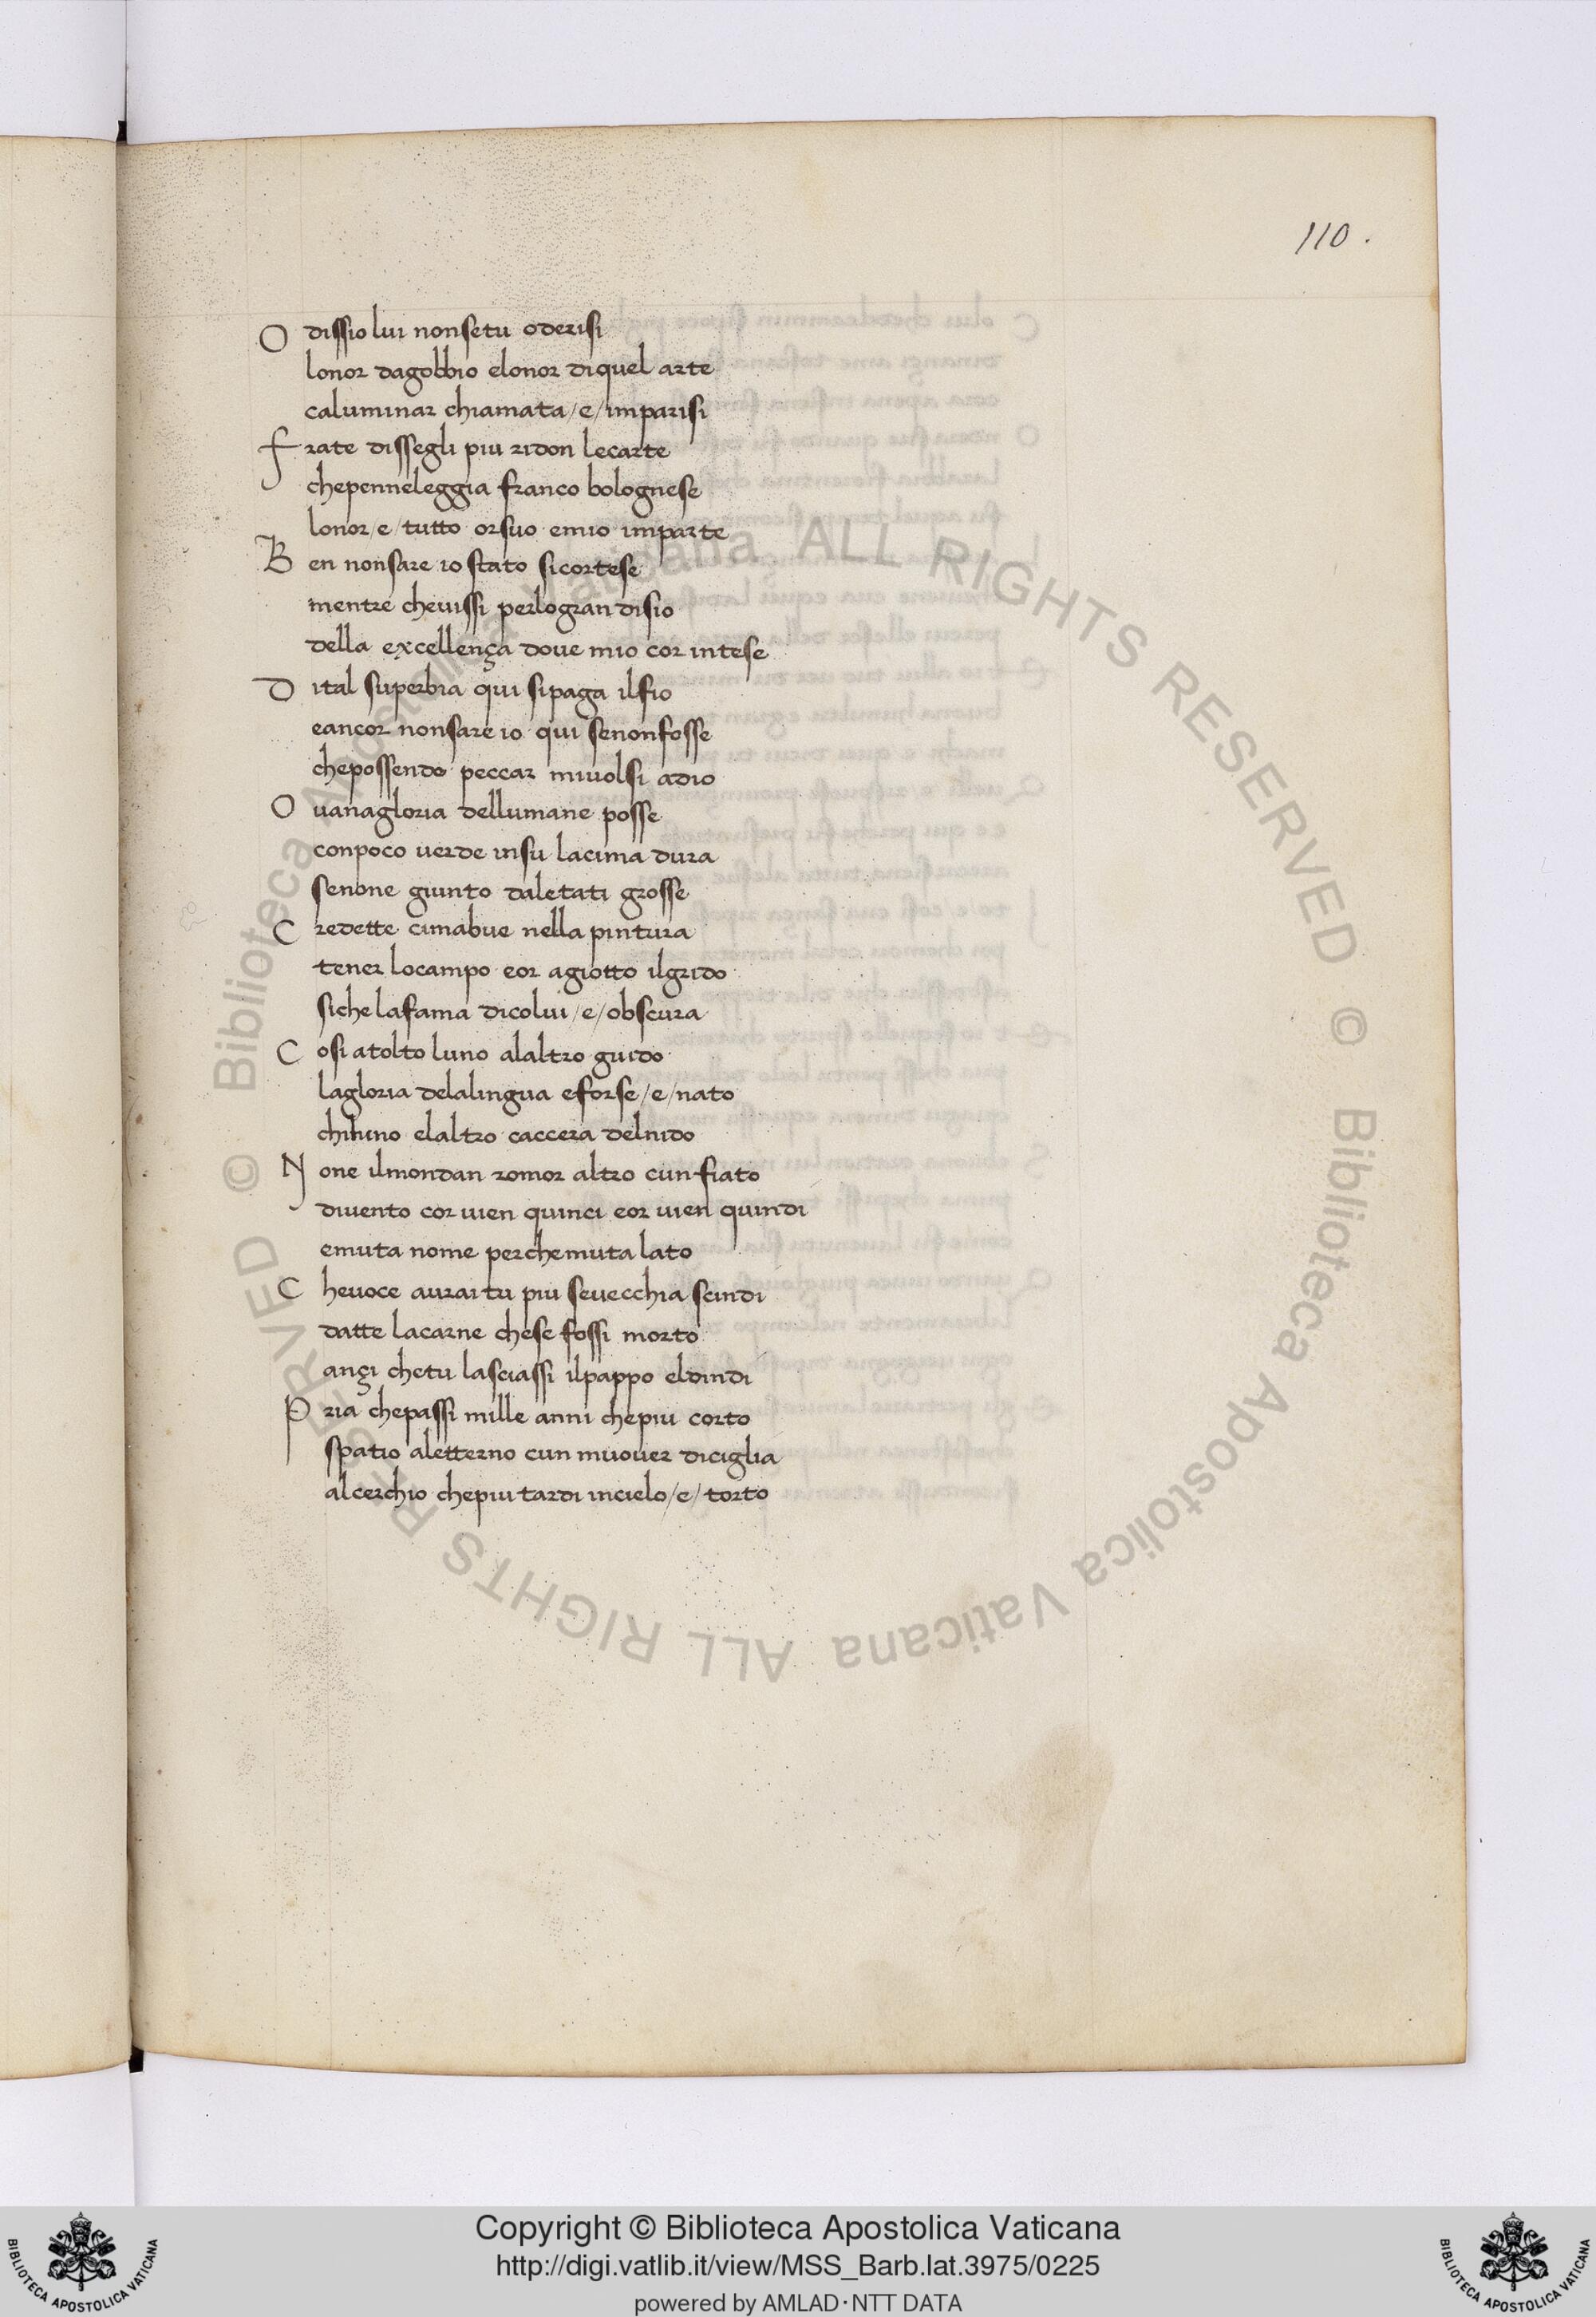 110.
O dissio lui nonsetu oderisi
lonor dagobbio elonor diquel arte
caluminar chiamata/e/imparisi
frate dissegli piu ridon lecarte
chepenneleggia franco bolognese
lonor/e/tutto orsuo emio imparte
Ben nonsare io stato sicortese
mentre cheuissi perlogran disio
della excellença doue mio cor intese
Dital superbia qui sipaga ilfio
eancor nonsare io qui senonfosse
chepossendo peccar miuolsi adio
O uanagloria dellumane posse
conpoco uerde insu lacima dura
senone giunto daletati grosse
Credette cimabue nella pintura
tener locampo eor agiotto ilgrido
siche lafama dicolui/e/obscura
Cosi atolto luno alaltro guido
lagloria delalingua eforse/e/nato
chiluno elaltro caccera delnido
None ilmondan romor altro cun fiato
diuento cor uien quinci eor uien quindi
emuta nome perchemuta lato
Cheuoce aurai tu piu seuecchia scindi
datte lacarne chese fossi morto
angi chetu lasciassi ilpappo eldindi
Pria chepassi mille anni chepiu corto
spatio aletterno cun muouer diciglia
alcerchio chepiu tardi incielo/e/torto
© Biblioteca Apostolica Vaticana ALL RIGHTS RESERVED © Biblioteca Apostolica Vaticana ALL RIGHTS RESERVED
Copyright © Biblioteca Apostolica Vaticana
http://digi.vatlib.it/view/MSS_Barb.lat.3975/0225
powered by AMLAD·NTT DATA
BIBLIOTECA APOSTOLICA VATICANA
BIBLIOTECA APOSTOLICA VATICANA